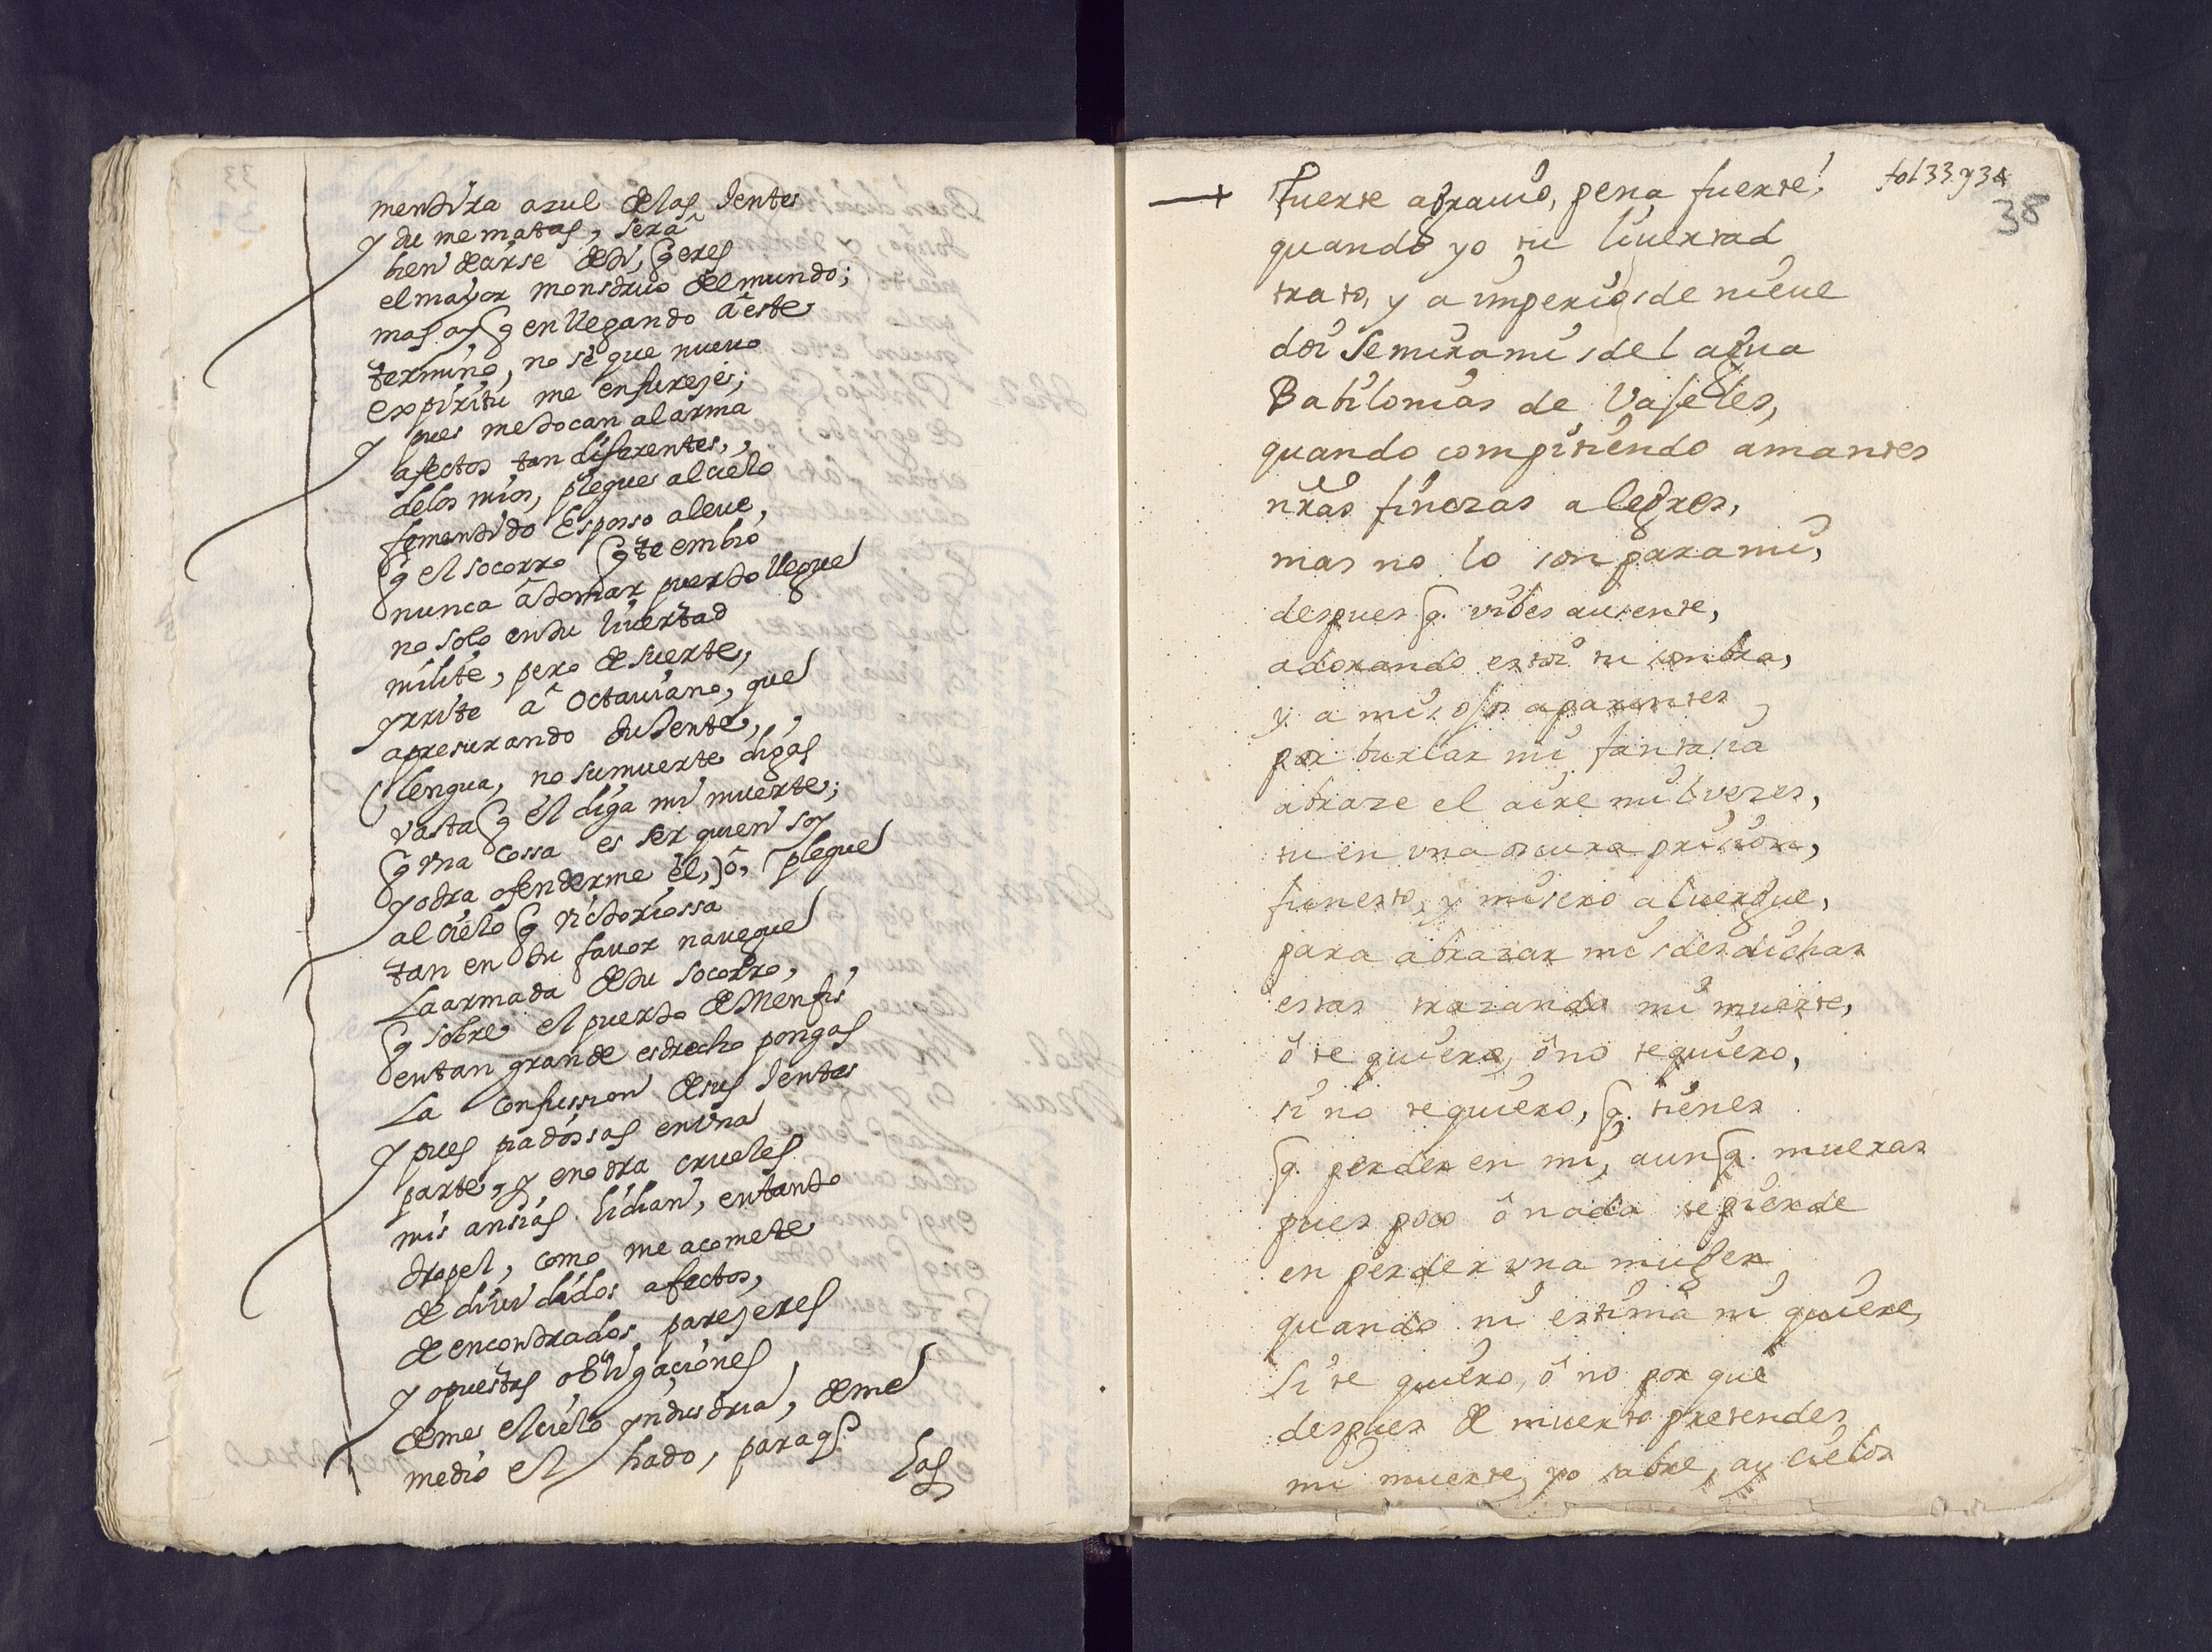 mentira azul de las Jentes
y tu me matas, será
bien dezirse de ti, q eres
el mayor monstruo del mundo;
mas ay, q en llegando â este
termino, no sè que nueuo
expiritu me enfureze;
y pues me tocan al arma
afectos tan diferentes,
de los mios, plegue al cielo
fementido Esposso aleue,
q el socorro q te embio
nunca â tomar puerto llegue
no solo en tu liuertad
milite, pero de suerte,
yrrite â Octauiano, que
apresurando tu Jente,
(lengua, no su muerte digas
vasta q el diga mi muerte;
q vna cossa es ser quien soy
y otra ofenderme él,) ô, plegue
al cielo q victoriossa
tan en tu fauor nauegue
La armada de tu socorro,
q sobre el puerto de Menfis
en tan grande estrecho pongas
La confussion de sus Jentes
y pues piadossas en vna
parte, y en otra crueles
mis ansias lidian, en tanto
tropel, como me acomete
de diuididos afectos,
de encontrados pareÿeres
y opuestas obligaciones
deme el cielo yndustria, deme
medio el hado, para q
las
fol 33. y 34
38
Fuerte agrauio, pena fuerte!
quando yo tu liuertad
trato, y a imperios de nieue
doi Semiramis del agua
Babilonias de Vajeles,
quando compitiendo amantes
nras finezas alegres,
mas no lo son para mi,
despues q. vibes ausente,
adorando estoi tu sombra,
y a mis ojos aparentes
por burlar mi fantasia
abraze el aire mil vezes,
tu en vna oscura prision,
funesto, y misero aluergue,
para abrazar mis desdichas
estas trazando mi muerte,
ô te quiero, ô no te quiero,
si no te quiero, q. tienes
q. perder en mi, aun q. mueras
pues poco ô nada se pierde
en perder vna muger
quando ni estima ni quiere,
si te quiero, ô no por que
despues de muerto pretendes
mi muerte, yo sabre, ay cielos